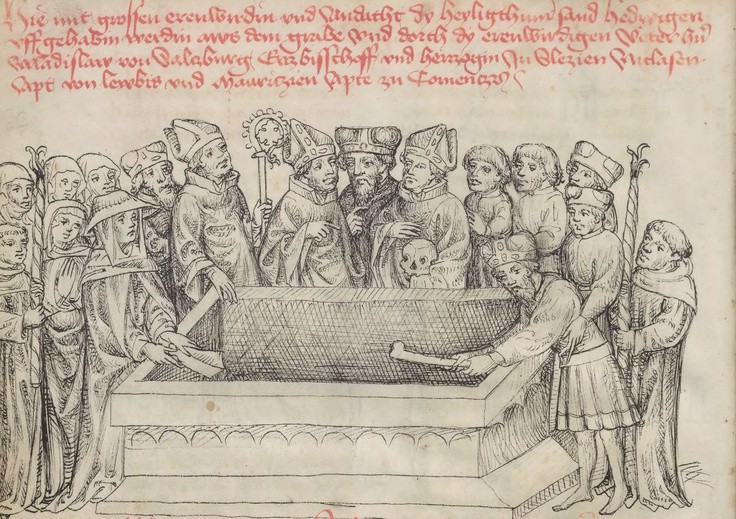 Hie mit grossen erenwirdin und Andacht dy heyligthum sand Hedwigen
uffgehabin werdin aws dem grabe und dorch dy erenwirdigen veter
Wladislaw von Salczburg Erczbisschoff und herrzogin In Slezien
Apt von lewbis und Mauriczien Apte zu Comenczy